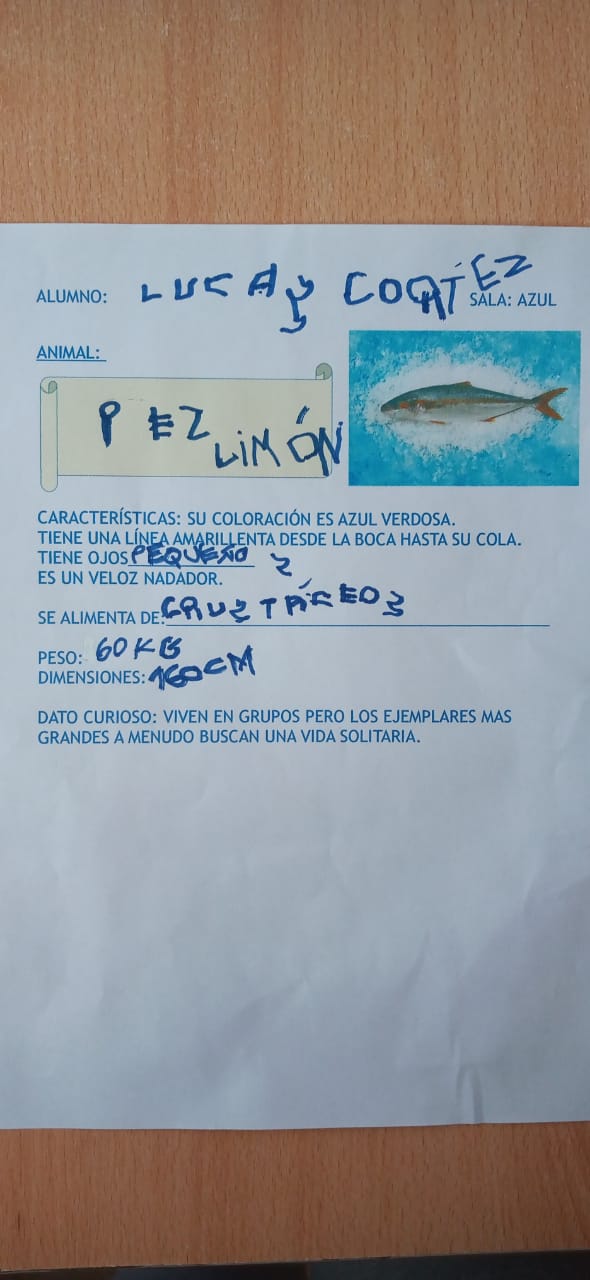 ALUMNO: LUCAS CORTÉZ SALA: AZUL
ANIMAL:
PEZ LIMÓN
CARACTERÍSTICAS: SU COLORACIÓN ES AZUL VERDOSA.
TIENE UNA LÍNEA AMARILLENTA DESDE LA BOCA HASTA SU COLA.
TIENE OJOS PEQUEÑOS
ES UN VELOZ NADADOR.
SE ALIMENTA DE: CRUSTÁCEOS
PESO: 60 KG
DIMENSIONES: 160 CM
DATO CURIOSO: VIVEN EN GRUPOS PERO LOS EJEMPLARES MAS
GRANDES A MENUDO BUSCAN UNA VIDA SOLITARIA.